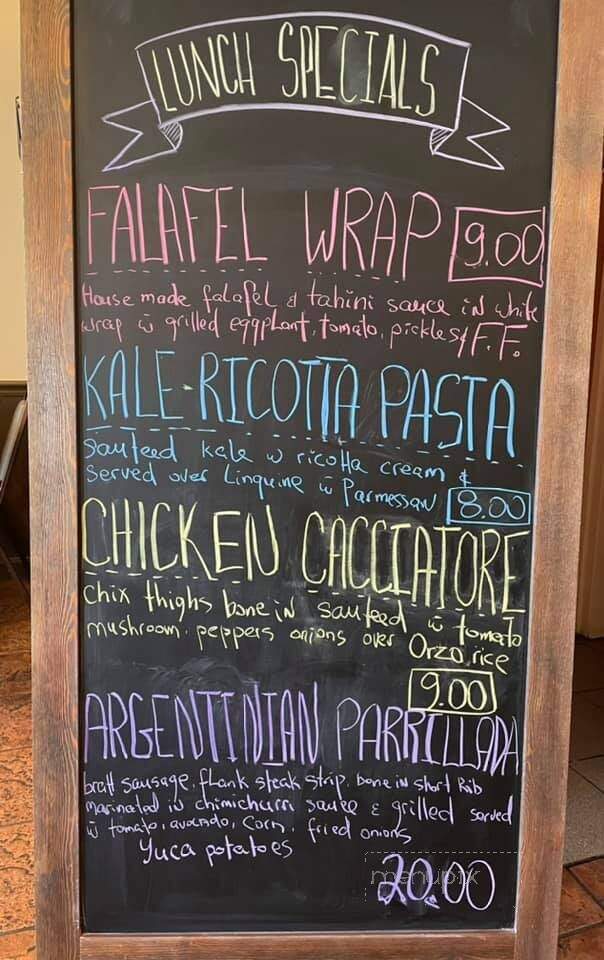 LUNCH SPECIALS
FALAFEL WRAP 9.00
House made falafel & tahini sauce in white
wrap w̄ grilled eggplant, tomato, pickles & F.F.
KALE-RICOTTA PASTA
Sauteed kale w ricotta cream &
Served over Linguine w̄ Parmessan 8.00
CHICKEN CACCIATORE
Chix thighs bone in sauteed w̄ tomato
mushroom, peppers onions over Orzo rice
9.00
ARGENTINIAN PARRILLADA
bratt sausage, flank steak strip, bone in short Rib
marinated in chimichurri sauce & grilled served
w̄ tomato, avocado, corn, fried onions
Yuca potatoes
menupix
20.00